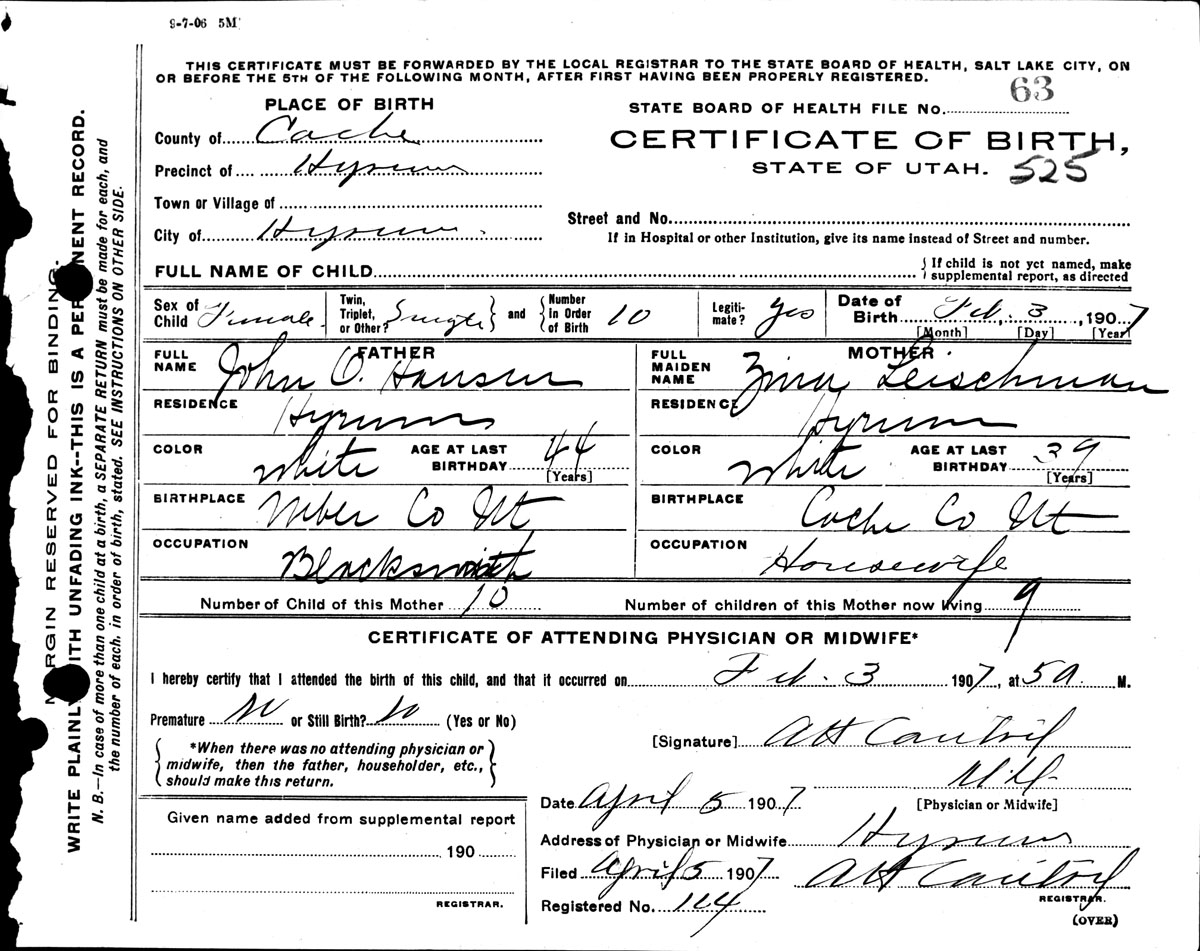 9-7-06 5M
THIS CERTIFICATE MUST BE FORWARDED BY THE LOCAL REGISTRAR TO THE STATE BOARD OF HEALTH, SALT LAKE CITY, ON
OR BEFORE THE 5TH OF THE FOLLOWING MONTH, AFTER FIRST HAVING BEEN PROPERLY REGISTERED.
PLACE OF BIRTH
County of Cache
Precinct of Hyrum
Town or Village of
City of Hyrum
STATE BOARD OF HEALTH FILE No. 63
CERTIFICATE OF BIRTH,
STATE OF UTAH. 525
Street and No.
If in Hospital or other Institution, give its name instead of Street and number.
FULL NAME OF CHILD { If child is not yet named, make
supplemental report, as directed
Sex of Child Female
Twin, Triplet, or Other? Single } and { Number In Order of Birth 10
Legitimate? Yes
Date of Birth Feb. 3, 1907
[Month] [Day] [Year]
FATHER
FULL NAME John O. Hansen
RESIDENCE Hyrum
COLOR White AGE AT LAST BIRTHDAY 44 [Years]
BIRTHPLACE Weber Co Ut
OCCUPATION Blacksmith
MOTHER
FULL MAIDEN NAME Zina Leischman
RESIDENCE Hyrum
COLOR White AGE AT LAST BIRTHDAY 39 [Years]
BIRTHPLACE Cache Co Ut
OCCUPATION Housewife
Number of Child of this Mother 10 Number of children of this Mother now living 9
CERTIFICATE OF ATTENDING PHYSICIAN OR MIDWIFE*
I hereby certify that I attended the birth of this child, and that it occurred on Feb. 3 1907, at 5 a. M.
Premature No or Still Birth? No (Yes or No)
{ *When there was no attending physician or
midwife, then the father, householder, etc.,
should make this return. }
[Signature] A H Cantril
M.D.
[Physician or Midwife]
Date April 5 1907
Address of Physician or Midwife Hyrum
Filed April 5 1907 A H Cantril
REGISTRAR.
Registered No. 114
(OVER)
Given name added from supplemental report
190
REGISTRAR.
MARGIN RESERVED FOR BINDING.
WRITE PLAINLY WITH UNFADING INK--THIS IS A PERMANENT RECORD.
N. B.—In case of more than one child at a birth, a SEPARATE RETURN must be made for each, and
the number of each. in order of birth, stated. SEE INSTRUCTIONS ON OTHER SIDE.